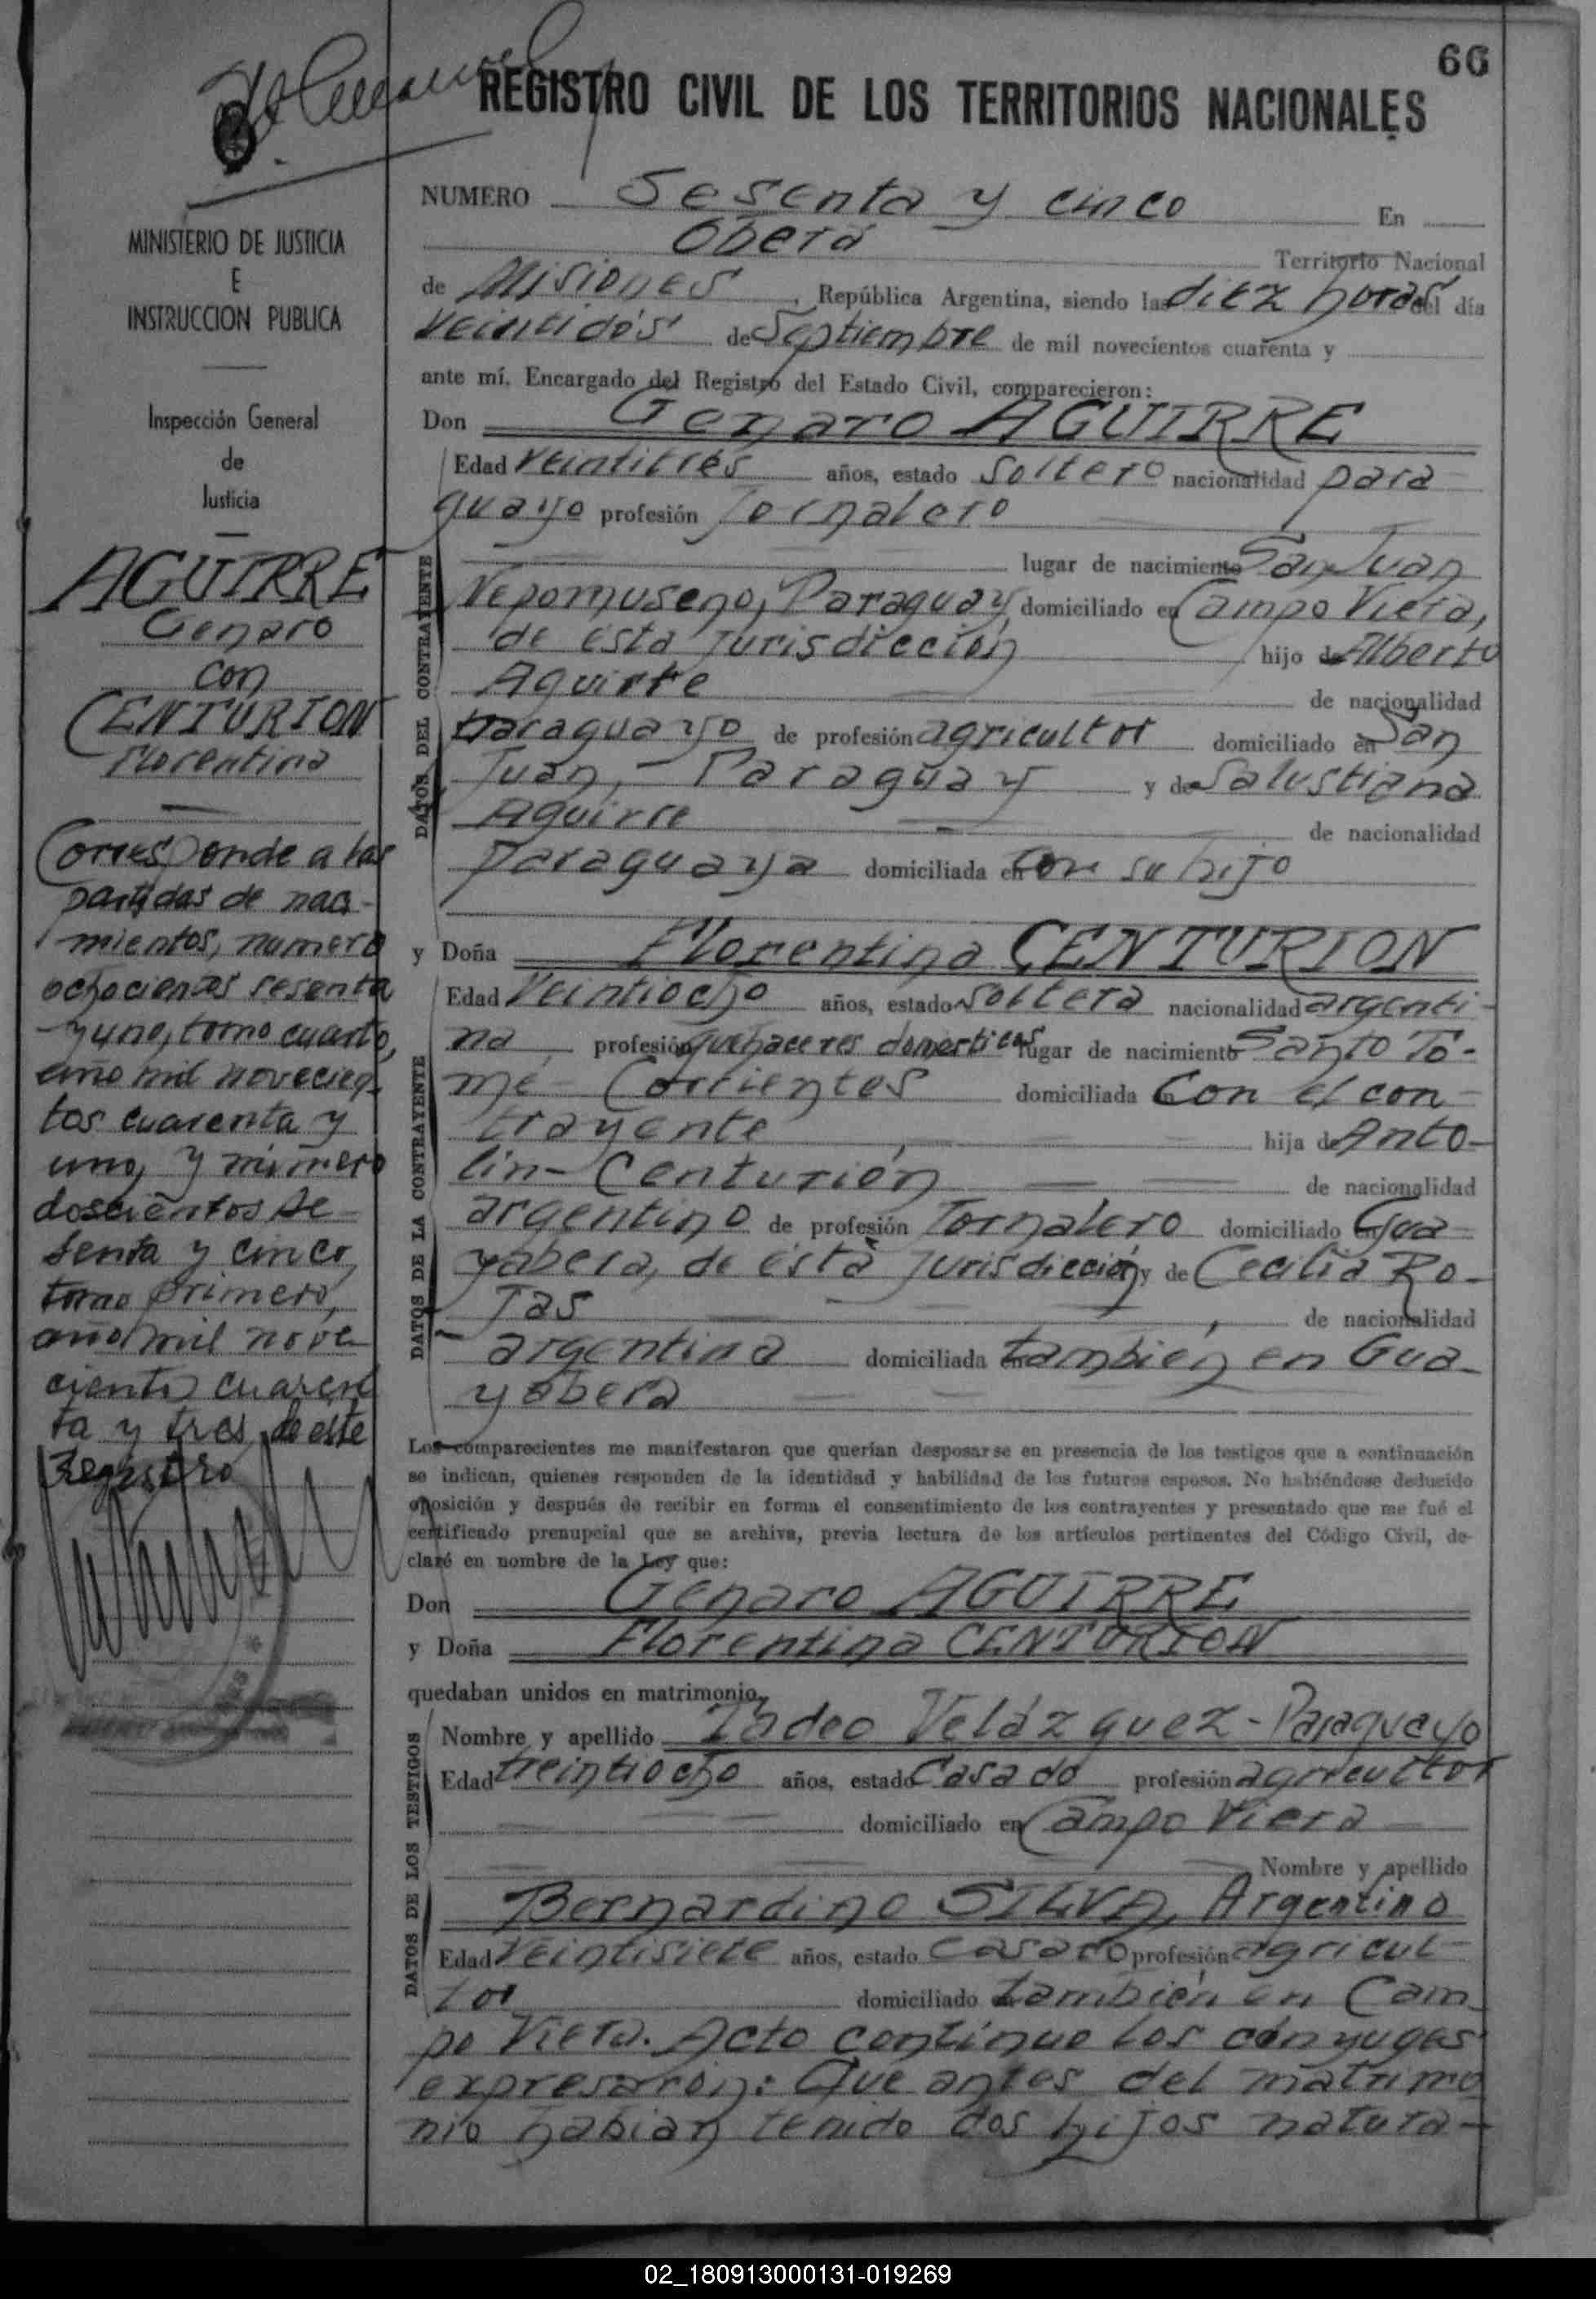 66
REGISTRO CIVIL DE LOS TERRITORIOS NACIONALES
MINISTERIO DE JUSTICIA
E
INSTRUCCION PUBLICA
Inspección General
de
Justicia
AGUIRRE
Genaro
con
CENTURION
Florentina
Corresponde a las
partidas de naci-
mientos, numero
ochocientos sesenta
y uno, tomo cuarto,
año mil novecien-
tos cuarenta y
uno, y número
doscientos se-
senta y cinco,
tomo primero,
año mil nove
cientos cuaren
ta y tres de este
Registro
NUMERO Sesenta y cinco En
Oberá Territorio Nacional
de Misiones, República Argentina, siendo las diez horas del día
veintidós de Septiembre de mil novecientos cuarenta y
ante mí, Encargado del Registro del Estado Civil, comparecieron:
Don Genaro AGUIRRE
DATOS DEL CONTRAYENTE
Edad Veintitres años, estado soltero nacionalidad para
guayo profesión Jornalero
lugar de nacimiento San Juan
Nepomuseno, Paraguay, domiciliado en Campo Viera,
de ésta Jurisdicción hijo de Alberto
Aguirre de nacionalidad
paraguayo de profesión agricultor domiciliado en San
Juan, - Paraguay y de Salustiana
Aguirre de nacionalidad
paraguaya domiciliada en con su hijo
y Doña Florentina CENTURION
DATOS DE LA CONTRAYENTE
Edad Veintiocho años, estado soltera nacionalidad argenti-
na profesión quehaceres domesticos lugar de nacimiento Santo To-
mé - Corrientes domiciliada en Con el con-
trayente hija de Anto-
lin - Centurión de nacionalidad
argentino de profesión Jornalero domiciliado en Gua-
yabera, de ésta Jurisdicción y de Cecilia Ro-
jas de nacionalidad
argentina domiciliada en también en Gua-
yabera
Los comparecientes me manifestaron que querían desposarse en presencia de los testigos que a continuación
se indican, quienes responden de la identidad y habilidad de los futuros esposos. No habiéndose deducido
oposición y después de recibir en forma el consentimiento de los contrayentes y presentado que me fué el
certificado prenupcial que se archiva, previa lectura de los artículos pertinentes del Código Civil, de-
claré en nombre de la Ley que:
Don Genaro AGUIRRE
y Doña Florentina CENTURION
quedaban unidos en matrimonio.
DATOS DE LOS TESTIGOS
Nombre y apellido Tadeo Velázquez - Paraguayo
Edad treintiocho años, estado Casado profesión agricultor
domiciliado en Campo Viera
Nombre y apellido
Bernardino SILVA, Argentino
Edad Veintisiete años, estado casado profesión agricul-
tor domiciliado en también en Cam-
po Viera. Acto continuo los cónyuges
expresaron: Que antes del matrimo
nio habian tenido dos hijos natura-
02_180913000131-019269